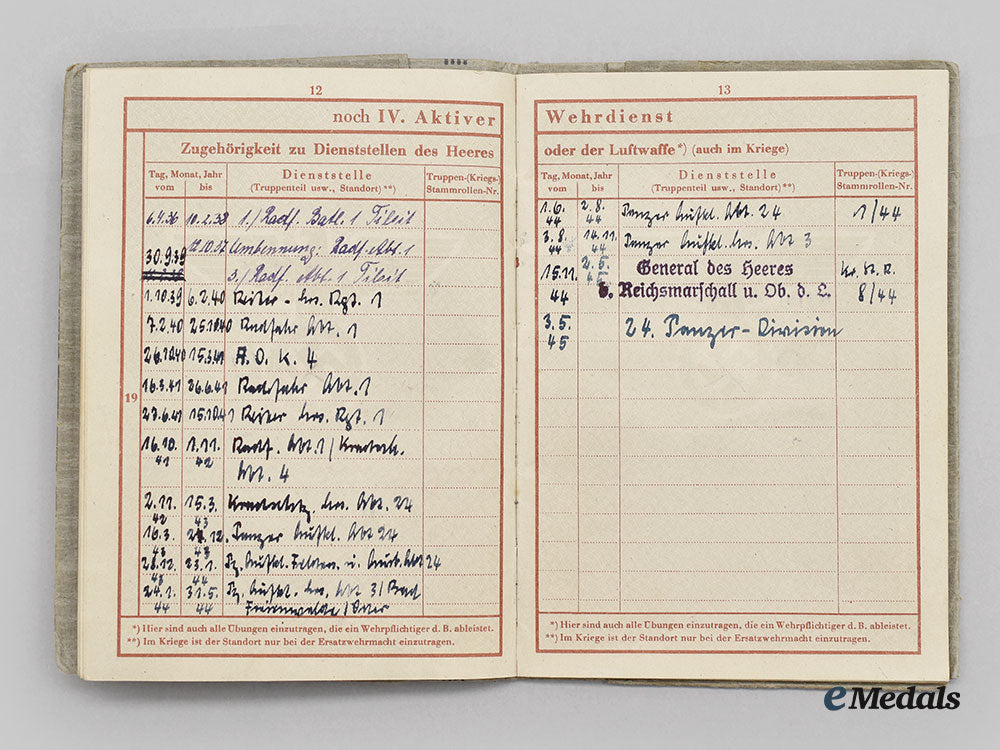 12
noch IV. Aktiver
Zugehörigkeit zu Dienststellen des Heeres
Tag, Monat, Jahr
vom bis
Dienststelle
(Truppenteil usw., Standort) **)
Truppen-(Kriegs-)
Stammrollen-Nr.
6.4.36 10.2.38 1./Radf. Batl. 1 Tilsit
12.10.37 Umbennung: Radf. Abt. 1
30.9.39
3/Radf. Abt. 1 Tilsit
1.10.39 6.2.40 Reiter-Ers. Rgt. 1
7.2.40 25.10.40 Radfahr Abt. 1
26.10.40 15.3.41 A.O.K. 4
16.3.41 Radfahr Abt. 1
23.6.41 15.10.41 Reiter Ers. Rgt. 1
19
16.10. 1.11. Radf. Abt. 1/
41 42
Abt. 4
2.11. 15.3. Ers. Abt. 24
42 43
16.3. 27.12. Panzer Aufkl. Abt 24
43 43
28.12. 23.1. Pz. Aufkl. u. Ausb. Abt 24
43 44
24.1. 31.5. Pz. Aufkl. Ers. Abt 3/Bad
44 44 Freienwalde/Oder
*) Hier sind auch alle Übungen einzutragen, die ein Wehrpflichtiger d. B. ableistet.
**) Im Kriege ist der Standort nur bei der Ersatzwehrmacht einzutragen.
13
Wehrdienst
oder der Luftwaffe*) (auch im Kriege)
Tag, Monat, Jahr
vom bis
Dienststelle
(Truppenteil usw., Standort) **)
Truppen-(Kriegs-)
Stammrollen-Nr.
1.6. 2.8. Panzer Aufkl. Abt. 24 1/44
44 44
3.8. 14.11. Panzer Aufkl. Ers. Abt 3
44 44
15.11. 2.5. General des Heeres Kr. St. R.
44 45 b. Reichsmarschall u. Ob. d. L. 8/44
3.5. 24. Panzer-Division
45
*) Hier sind auch alle Übungen einzutragen, die ein Wehrpflichtiger d. B. ableistet.
**) Im Kriege ist der Standort nur bei der Ersatzwehrmacht einzutragen.
eMedals